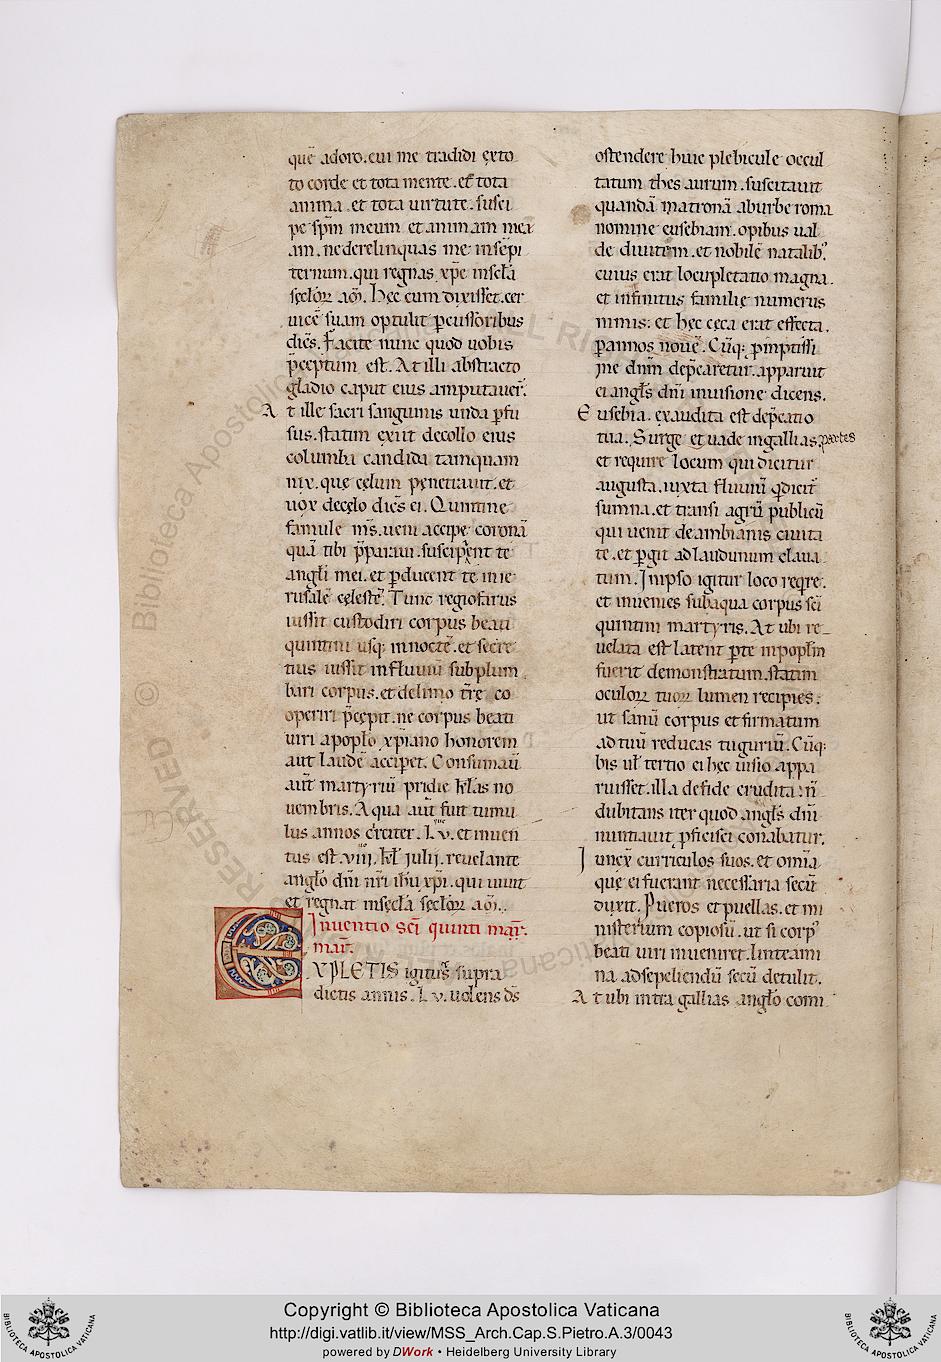 quē adoro. cui me tradidi exto
to corde et tota mente. et tota
anima. et tota uirtute. susci
pe spm̄ meum et animam meā
am. ne derelinquas me insēpi
ternum. qui regnas xp̄e insc̄la
sęcl̄oꝝ am̄. hęc cum dixisset. cer
uicē suam optulit p̄cussoribus
dicēs. Facite nunc quod uobis
p̄ceptum est. At illi abstracto
gladio caput eius amputauer̄.
At ille sacri sanguinis unda p̄fu
sus. statim exiit decollo eius
columba candida tamquam
nix. que cęlum penetrauit. et
uox decęlo dicēs ei. Quintine
famule m̄s. ueni accipe coronā
quā tibi p̄paraui. suscipient te
angl̄i mei. et p̄ducent te inie
rusalē cęlestē. Tunc regiofarus
iussit custodiri corpus beati
quintini usq; innoctē. et secre
tius iussit influuiū subplum
bari corpus. et delimo t̄rę co
operiri p̄cepit. ne corpus beati
uiri apopl̄o xp̄iano honorem
aut laudē accipet. Consumaū
aūt martyriū pridie kl̄as no
uembris. A qua aūt fuit tumu
lus annos circiter. L v. et inuen
tus est. viij. kl̄ julij. reuelante
angl̄o dn̄i nr̄i ih̄u xp̄i. qui uiuit
et regnat insęcl̄a sęcl̄oꝝ am̄.
Inuentio sc̄i quinti mar̄.
mar̄.
EXPLETIS igitur supra
dictis annis. L v. uolens d̄s
ostendere huic plebicule occul
tatum thesaurum. suscitauit
quandā matronā aburbe roma
nomine eusebiam. opibus ual
de diuitem. et nobilē natalib;
cuius erat locupletatio magna.
et infinitus familię numerus
nimis. et hęc cęca erat effecta.
p̄annos nouē. Cūq; p̄mptissi
me dn̄m dep̄caretur. apparuit
ei angl̄s dn̄i inuisione dicens.
Eusebia. exaudita est dep̄catio
tua. Surge et uade ingallias partes
et require locum qui dicitur
augusta. iuxta fluuiū q̄ dicit̄
sumna. et transi agrū publicū
qui uenit deambianis ciuita
te. et p̄git adlaudunum claua
tum. Inipso igitur loco reqre.
et inuenies subaqua corpus sc̄i
quintini martyris. At ubi re
uelata est latent p̄te inpopl̄m
fuerit demonstratum. statim
oculoꝝ tuoꝝ lumen recipies.
ut sanū corpus et firmatum
adtuū reducas tuguriū. Cūq;
bis ul̄ tertio ei hęc uisio appa
ruisset. illa defide erudita. n̄
dubitans iter quod angl̄s dn̄i
nuntiauit p̄ficisci conabatur.
Iunex curriculos suos. et omīa
que ei fuerant necessaria secū
duxit. Pueros et puellas. et mi
nisterium copiosū. ut si corp;
beati uiri inueniret. linteami
na adsepeliendū secū detulit.
At ubi intra gallias angl̄o comi
Copyright © Biblioteca Apostolica Vaticana
http://digi.vatlib.it/view/MSS_Arch.Cap.S.Pietro.A.3/0043
powered by DWork • Heidelberg University Library